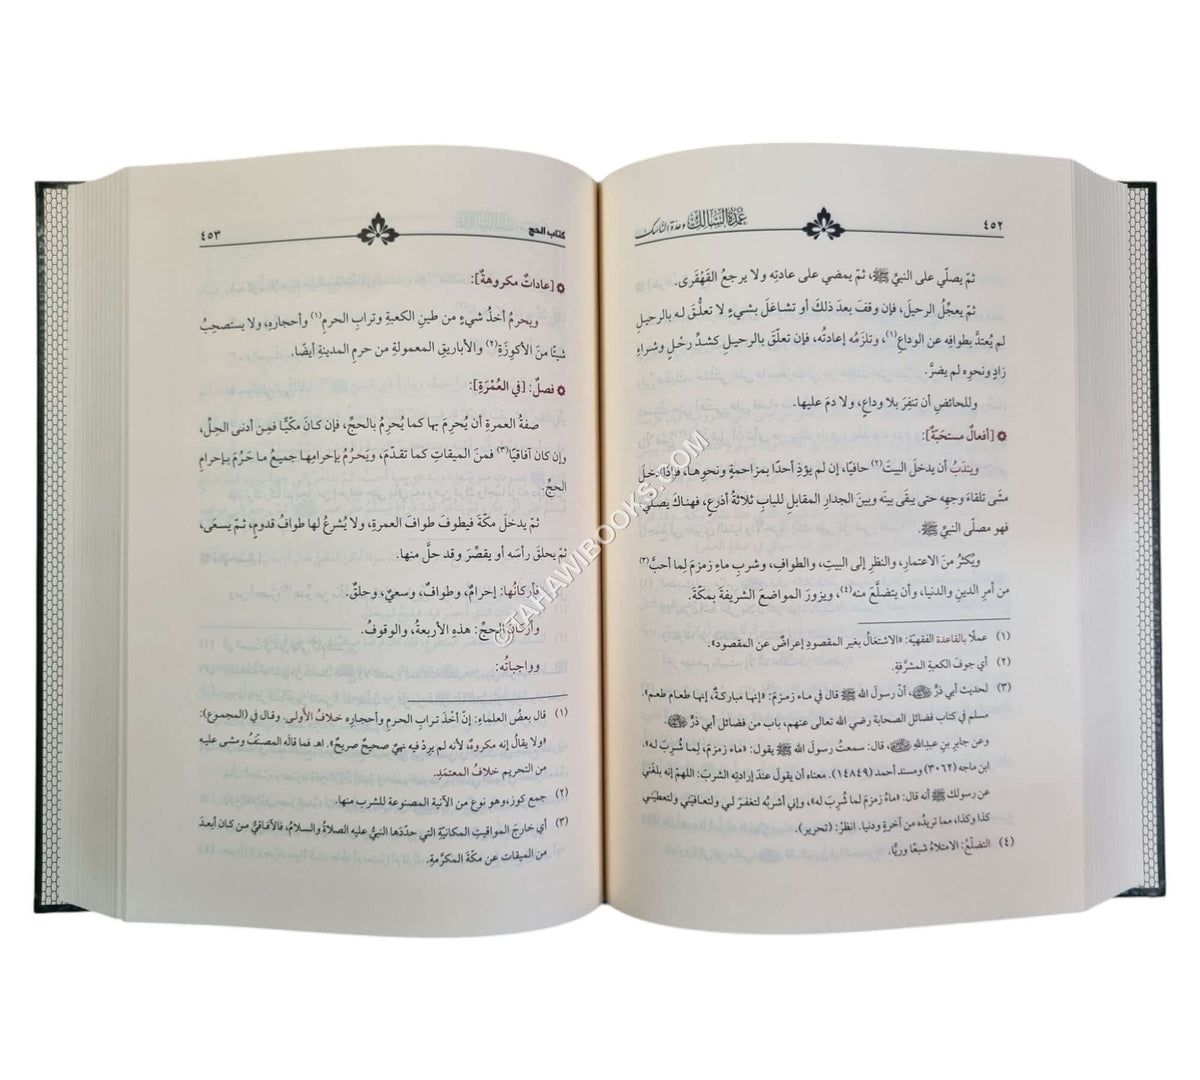 ٤٥٢
عُمْدَةُ السَّالِك وعدة الناسك
ثمّ يصلّي على النبيِّ ﷺ، ثمّ يمضي على عادتِه ولا يرجعُ القَهْقَرى.
ثمّ يعجِّل الرحيلَ، فإن وقفَ بعدَ ذلكَ أو تشاغلَ بشيءٍ لا تعلُّقَ له بالرحيلِ
لم يُعتدَّ بطوافِه عن الوداعِ(١)، وتلزمُه إعادتُه، فإن تعلّقَ بالرحيلِ كشدِّ رحْلٍ وشراءِ
زادٍ ونحوِه لم يضرَّ.
وللحائضِ أن تنفِرَ بلا وداعٍ، ولا دمَ عليها.
[أفعالٌ مستحبّةٌ]:
ويندَبُ أن يدخلَ البيتَ(٢) حافيًا، إن لم يؤذِ أحدًا بمزاحمةٍ ونحوِها، فإذا دخلَ
مشى تلقاءَ وجهِه حتى يبقى بينَه وبينَ الجدارِ المقابلِ للبابِ ثلاثةُ أذرعٍ، فهناكَ يصلّي
فهو مصلّى النبيِّ ﷺ.
ويُكثرُ منَ الاعتمارِ، والنظرِ إلى البيتِ، والطوافِ، وشربِ ماءِ زمزمَ لِما أحبَّ(٣)
من أمرِ الدينِ والدنيا، وأن يتضلّعَ منه(٤)، ويزورَ المواضعَ الشريفةَ بمكّةَ.
(١) عملًا بالقاعدة الفقهيّة: «الاشتغالُ بغيرِ المقصودِ إعراضٌ عن المقصود».
(٢) أي جوفَ الكعبةِ المشرَّفةِ.
(٣) لحديثِ أبي ذرٍّ رضي الله عنه، أنّ رسولَ الله ﷺ قال في ماءِ زمزمَ: «إنها مباركةٌ، إنها طعامُ طعم».
مسلم في كتاب فضائل الصحابة رضي الله تعالى عنهم، باب من فضائل أبي ذرٍّ رضي الله عنه.
وعن جابرِ بنِ عبدِالله رضي الله عنه، قال: سمعتُ رسولَ الله ﷺ يقول: «ماء زمزمَ، لِما شُرِبَ له».
ابن ماجه (٣٠٦٢) ومسند أحمد (١٤٨٤٩). معناه أن يقولَ عندَ إرادتِه الشربَ: اللهمّ إنه بلغَني
عن رسولِك ﷺ أنه قال: «ماءُ زمزمَ لما شُرِبَ له»، وإني أشربُه لتغفرَ لي ولتعافيَني ولتعطيَني
كذا وكذا، مما تريدُه من آخرةٍ ودنيا. انظرْ: (تحرير).
(٤) التضلّعُ: الامتلاءُ شبعًا وريًّا.
كتاب الحج
٤٥٣
[عاداتٌ مكروهةٌ]:
ويحرمُ أخذُ شيءٍ من طينِ الكعبةِ وترابِ الحرمِ(١) وأحجارِه، ولا يستصحِبُ
شيئًا منَ الأكوزَةِ(٢) والأباريقِ المعمولةِ من حرمِ المدينةِ أيضًا.
فصلٌ: [في العُمْرَةِ]:
صفةُ العمرةِ أن يُحرِمَ بها كما يُحرِمُ بالحجِّ، فإن كانَ مكّيًّا فمِن أدنى الحِلِّ،
وإن كان آفاقيًّا(٣) فمنَ الميقاتِ كما تقدّمَ، ويَحرُمُ بإحرامِها جميعُ ما حَرُمَ بإحرامِ
الحجِّ.
ثمّ يدخلَ مكّةَ فيطوفَ طوافَ العمرةِ، ولا يُشرعُ لها طوافُ قدومٍ، ثمّ يسعى،
ثمّ يحلقَ رأسَه أو يقصِّرَ وقد حلَّ منها.
فأركانُها: إحرامٌ، وطوافٌ، وسعيٌ، وحلقٌ.
وأركانُ الحجِّ: هذه الأربعةُ، والوقوفُ.
وواجباتُه:
(١) قال بعضُ العلماء: إنّ أخْذَ ترابِ الحرمِ وأحجارِه خلافُ الأَولى. وقال في (المجموع):
«ولا يقالُ إنه مكروهٌ، لأنه لم يردْ فيه نهيٌ صحيحٌ صريحٌ». اهـ فما قاله المصنّفُ ومشى عليه
من التحريمِ خلافُ المعتمَدِ.
(٢) جمع كوز، وهو نوع من الآنيةِ المصنوعةِ للشربِ منها.
(٣) أي خارجَ المواقيتِ المكانيّةِ التي حدّدَها النبيُّ عليه الصلاةُ والسلامُ، فالآفاقيُّ من كان أبعدَ
من الميقات عن مكةَ المكرَّمةِ.
©TAHAWIBOOKS.COM